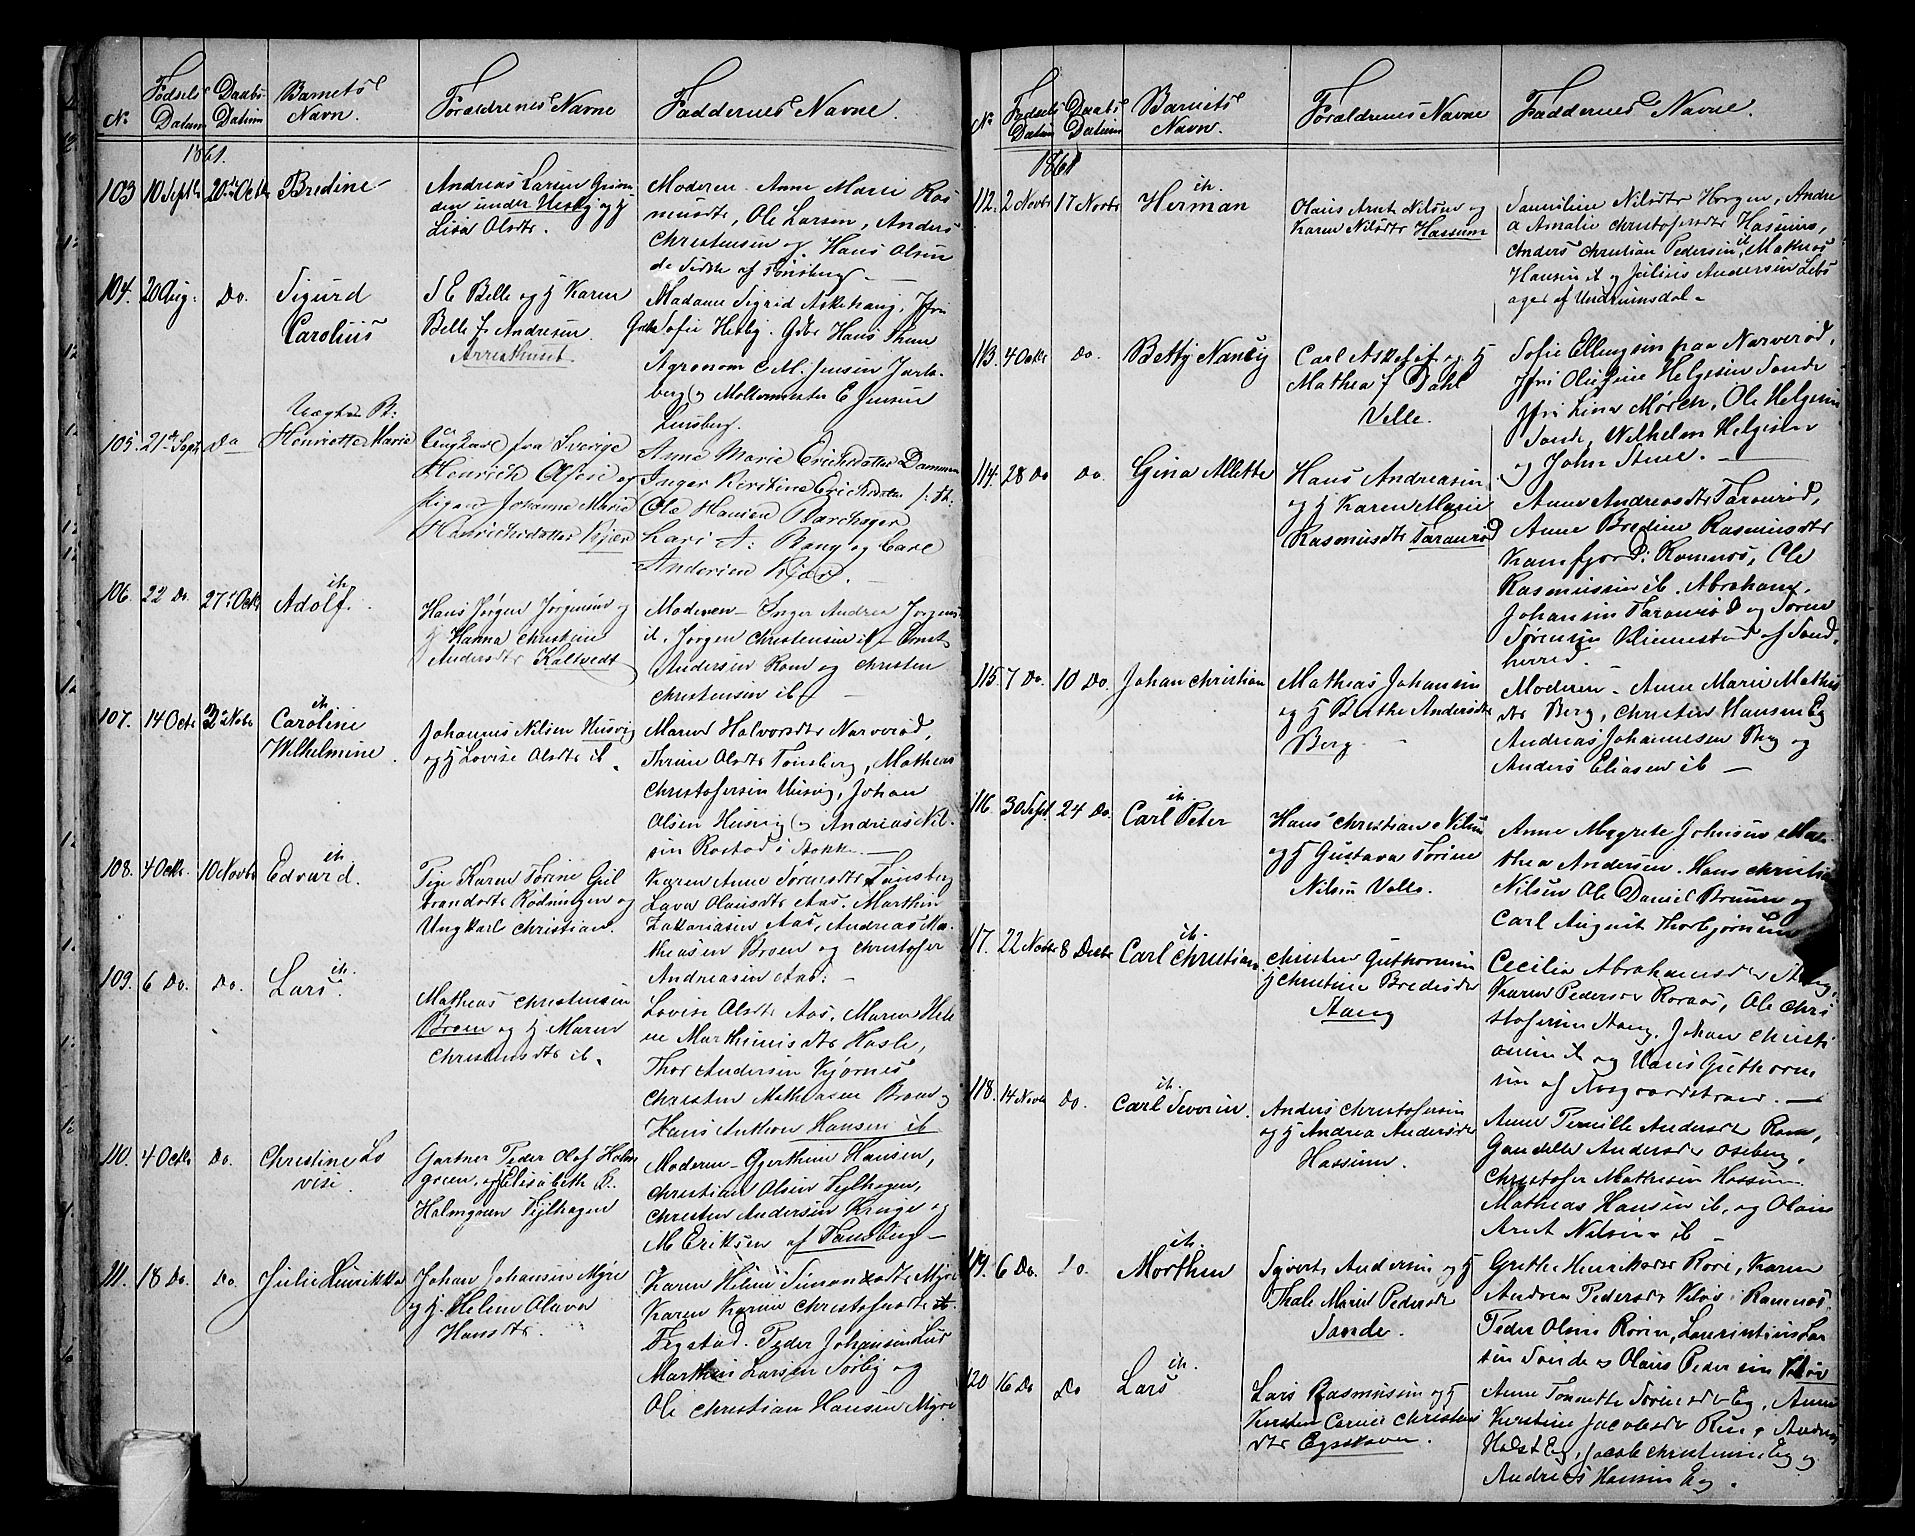 No
Fødsels Datum
Daabs Datum
Barnets Navn.
Forældrenes Navne
Faddernes Navne.
1861.
103 10 Septb 20de Octb Bredine
Andreas Larsen
den under Hesby og h
Lisa Olsdtr.
Moderen. Anne Marie Ras
musdtr, Ole Larsen, Anders
Christensen og Hans Olsen
de Sidste af Tønsberg —
104. 20 Aug. Do. Sigurd
Carolius
S E Belle og h Karen
Belle f. Andresen
Madame Sigrid Askehaug, Jfri
Sofie Hesby. Gdbr Hans Thun
Agronom C. M. Jensen Jarls-
berg og Møllermester E Jensen
Linsberg.
105. 21de Sept Do Uægte B:
Henriette Marie
Ungkarl fra Sverige
Henrich og
Pigen Johanne Marie
Henrichsdatter Kjær
Anne Marie Erichsdatter Dammen
Inger Kirstine Erichsdatter
Ole Hansen Barchager
Lars A: Bang og Carl
Andersen Kjær. —
106. 22 Do. 27de Octb Adolf. ch.
Hans Jørgen Jørgensen og
h Hanna Christine
Andersdtr Kaltvedt
Moderen — Inger Andrea Jørgens
d. Jørgen Christensen ib —
Andersen Rom og Christen
Christensen ib —
107. 14 Octb 3de Novb ch. Caroline
Wilhelmine.
Johannes Nilsen Husvig
og h Lovise Olsdtr ib.
Maren Halvorsdtr Narverød,
Thrine Olsdtr Tønsberg, Mathias
Christofersen Husvig, Johan
Olsen Husvig og Andreas Nil-
sen Rostad i Stokke —
108. 4 Octb. 10 Novbr Edvard. ch.
Pige Karen Torine Gul
brandsdtr Rødningen og
Ungkarl Christian.
Karen Anne Sørensdtr Tønsberg
Lava Olausdtr Aas. Marthin
Zakariasen Aas, Andreas Ma-
thiasen Broen og Christofer
Andreasen Aas. —
109. 6 Do. Do. Lars. ch.
Mathias Christensen
Broen og h. Maren
Christensdtr ib.
Lovise Olsdtr Aas, Maren Hele
ne Marthinisdtr Hasle,
Thor Andersen Kjørnes
Christen Mathiasen Broen og
Hans Anthon Hansen ib
110. 4 Octbr Do. Christine Lo
vise.
Gartner Peder Olaf Holm
green, og Elisabeth B.
Holmgreen Teglhagen
Moderen — Gjerthine Hansen,
Christian Olsen Teglhagen,
Christen Andersen Kruge og
M. Eriksen af Tønsberg —
111. 18 Do. Do. Julie Hinrikka
Johan Johansen Myre
og h. Helene Olava
Hansdtr.
Karen Heline Simonsdtr Myre
Karen Karine Christofersdtr ib.
Fegstad. Peder Johansen Lus
Marthin Larsen Sørby og
Ole Christian Hansen Myre
No
Fødsels Datum
Daabs Datum
Barnets Navn.
Forældrenes Navne
Faddernes Navne.
1861
112. 2 Novbr 17 Novbr Herman ch.
Olaus Arnt Nilsen og
Karen Nilsdtr Hassum
Samiline Nilsdtr Horgen, Andre
a Amalie Christofersdtr Hassum,
Anders Christian Pedersen ib, Mathias
Hansen ib og Julius Andersen Lebs
ager af Undrumsdal —
113. 4 Octbr Do. Betty Nancy
Carl Askeløf og h
Mathea f Dahl
Velle.
Sofie Ellingsen paa Narverød,
Jfri Olufine Helgesen Sande
Jfri Lina Mørch, Ole Helgesen
Sande, Wilhelm Helgesen
og John Steue. —
114. 28 Do Do. Gina Allette
Hans Andreasen
og h Karen Marie
Rasmusdtr Taranrød
Anne Andreasdtr Taranrød,
Anne Bredine Rasmusdtr
Kamfjord: Ramnes, Ole
Rasmussen ib. Abraham
Johansen Taranrød og Søren
Sørensen Unnestad af Sand-
herred.
115. 7 Do. 10 Do. Johan Christian
Mathias Johansen
og h Berthe Andersdtr
Berg. —
Moderen — Anne Marie Mathis
dtr Berg, Christen Hansen Eg
Andreas Johannesen Berg og
Anders Eliasen ib —
116 30 Sept 24 Do. ch. Carl Peter
Hans Christian Nilsen
og h Gustava Torine
Nilsen Velle.
Anne Magrete Johnsen Ma-
thea Andersen. Hans Christian
Nilsen Ole Daniel Bruun og
Carl August Thorbjørnsen
117. 22 Novbr 8 Decbr ch. Carl Christian
Christen Guthormsen
h Christine Bredesdtr
Aaug
Cecilia Abrahamsdtr
Karen Pedersdr Roraas, Ole Chri
stofersen Aaug, Johan Christi
ansen ib og Hans Guthorm
sen af Aasgaardstrand. —
118. 14 Novbr Do. ch. Carl Severin.
Anders Christofersen
og h Andrea Andersdtr
Hassum.
Anne Pernille Andersdr Rom,
Gundelle Andersdr Oseberg,
Christofer Mathisen Hassum
Mathias Hansen ib, og Olaus
Arnt Nilsen ib —
119. 6 Do. Do. ch. Morthen
Syvert Andersen og h
Thale Marie Pedersdr
Sande.
Grethe Henriksdr Røre, Karen
Andrea Pedersdr i Ramnes.
Peder Olsen Roren, Laurintius Lar
sen Sande og Olaus Pedersen
120 16 Do Do Lars. ch.
Lars Rasmussen og h
Kirsten Christens
dtr Egsskoven.
Anne Tonnette Sørensdr Eg, Anne
Kirstine Jacobsdr
Holst Eg, Jacob Christensen Eg og
Andreas Hansen Eg.